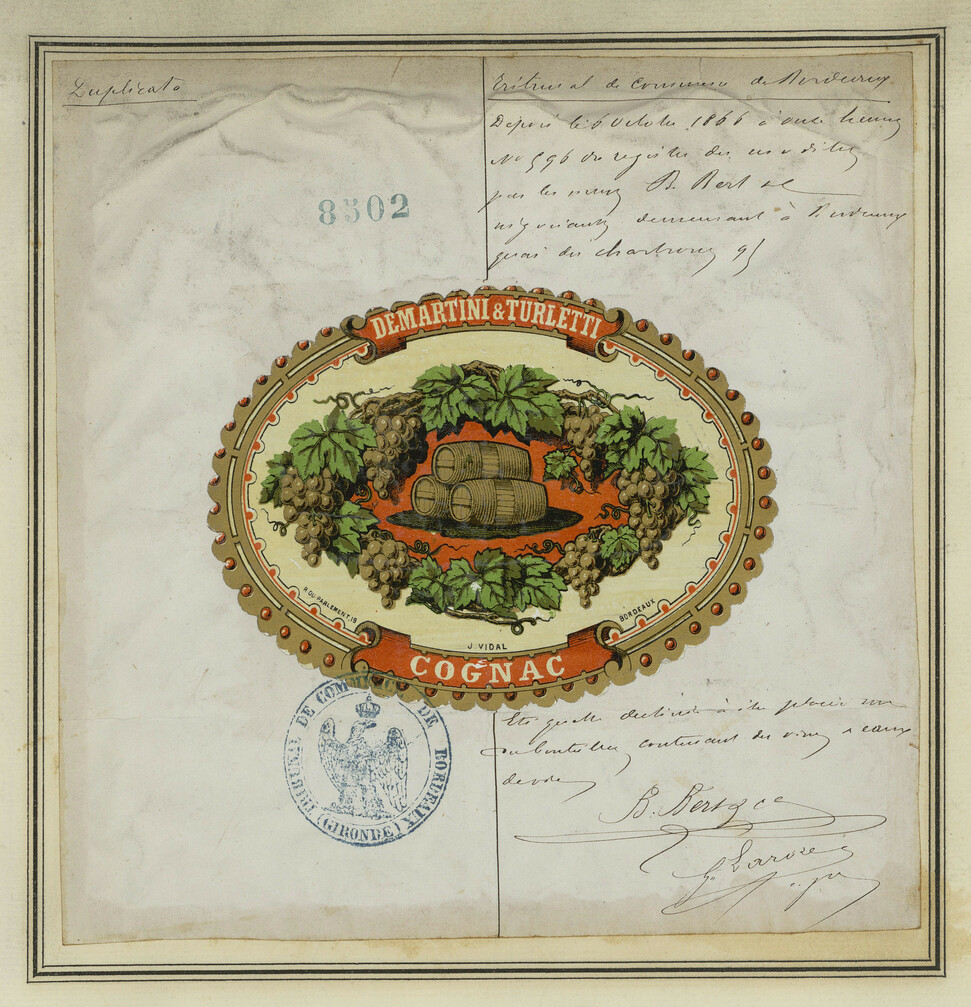 Duplicata
Tribunal de Commerce de Bordeaux
Depuis le 6 Octobre 1866 à onze heures
No 596 du registre des
par les B. Bert &
négociants demeurant à Bordeaux
quai des chartrons 91
8502
DEMARTINI & TURLETTI
R. DU PARLEMENT, 19
J. VIDAL
BORDEAUX
COGNAC
TRIBUNAL DE COMMERCE DE BORDEAUX
(GIRONDE)
Etiquette destinée à être placée sur
contenant des vins & eaux
de vie
B. Bert & Ce